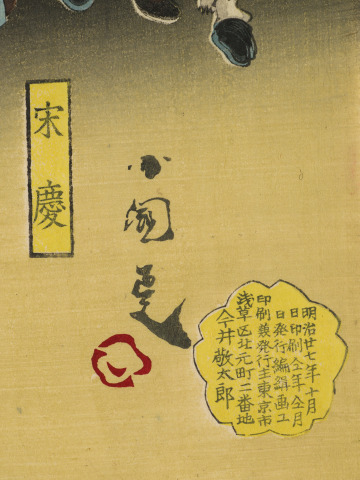 明治廿七年十月
日印刷仝年仝月
日発行編輯画工
印刷兼発行主東京市
淺草区北元町二番地
今井敬太郎
小國政
宋慶